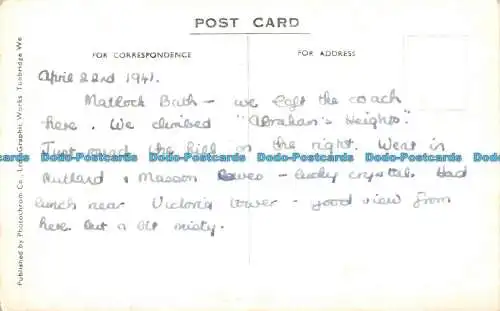 POST CARD
FOR CORRESPONDENCE
FOR ADDRESS
April 22nd 1941.
Matlock Bath - we left the coach
here. We climbed "Abraham's Heights".
Just round the hill on the right. Went in
Dodo-Postcards Dodo-Postcards Dodo-Postcards Dodo-Postcards
Rutland & Masson Caves - lovely crystal. Had
lunch near Victoria tower - good view from
here. But a bit misty.
Published by Photochrom Co., Graphic Works Tunbridge We